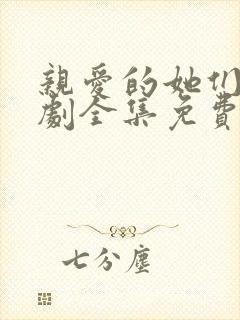 親愛的她们
劇全集免費
七分塵